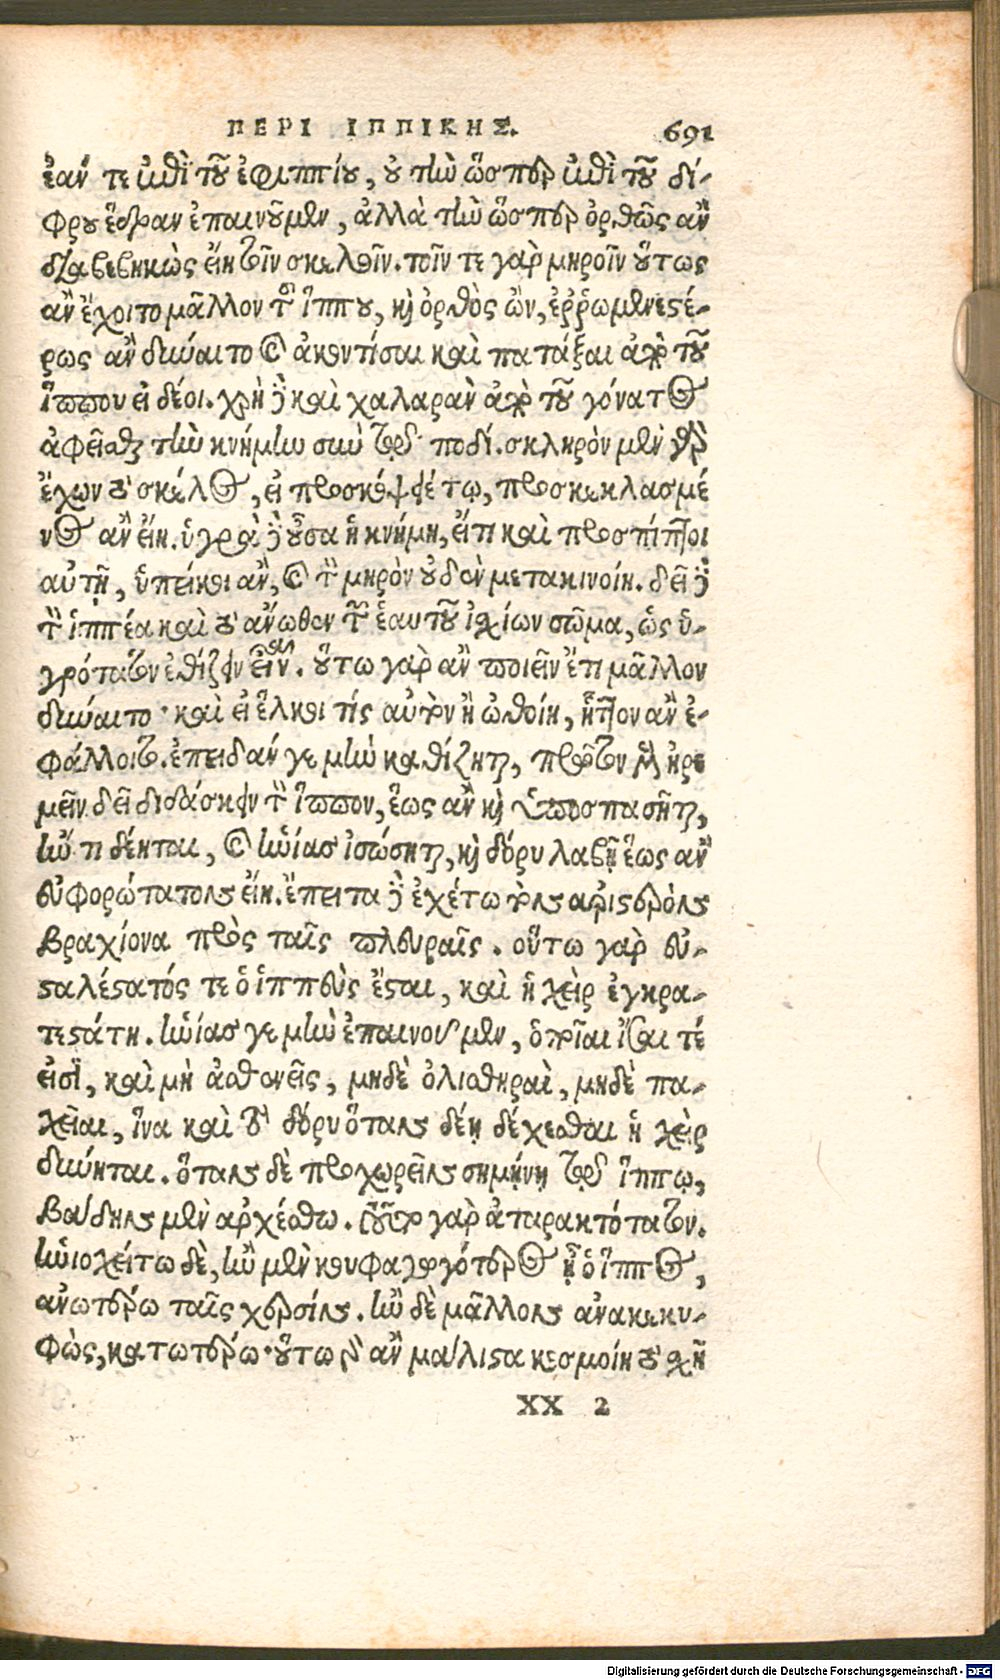 ΠΕΡΙ ΙΠΠΙΚΗΣ. 691
ἐάν τε ἐπὶ τοῦ ἐφιππίου, οὐ τὴν ὥσπερ ἐπὶ τοῦ δί-
φρου ἕδραν ἐπαινοῦμεν, ἀλλὰ τὴν ὥσπερ ὀρθῶς ἂν
διαβεβηκὼς εἴη τοῖν σκελοῖν. τοῖν τε γὰρ μηροῖν οὕτως
ἂν ἔχοιτο μᾶλλον τοῦ ἵππου, καὶ ὀρθὸς ὢν, ἐῤῥωμενεστέ-
ρως ἂν δύναιτο καὶ ἀκοντίσαι καὶ πατάξαι ἀπὸ τοῦ
ἵππου εἰ δέοι. χρὴ δὲ καὶ χαλαρὰν ἀπὸ τοῦ γόνατος
ἀφεῖσθαι τὴν κνήμην σὺν τῷ ποδί. σκληρὸν μὲν γὰρ
ἔχων τὸ σκέλος, εἰ προσκόψειέ τῳ, προσκεκλασμέ
νος ἂν εἴη. ὑγρὰ δὲ οὖσα ἡ κνήμη, εἴ τι καὶ προσπίπτοι
αὐτῇ, ὑπείκοι ἂν, καὶ τὸν μηρὸν οὐδὲν μετακινοίη. δεῖ δὲ
τὸν ἱππέα καὶ τὸ ἄνωθεν τῶν ἑαυτοῦ ἰσχίων σῶμα, ὡς ὑ-
γρότατον ἐθίζειν εἶναι. οὕτω γὰρ ἂν ποιεῖν ἔτι μᾶλλον
δύναιτο· καὶ εἰ ἕλκοι τίς αὐτὸν ἢ ὠθοίη, ἧττον ἂν ἐ-
φάλλοιτο. ἐπειδάν γε μὴν καθίζηται, πρῶτον μὲν ἠρε
μεῖν δεῖ διδάσκειν τὸν ἵππον, ἕως ἂν καὶ ὑποσπασῆται,
ἤν τι δέηται, καὶ ἡνίας ἰσώσηται, καὶ δόρυ λαβῇ ἕως ἂν
εὐφορώτατον εἴη. ἔπειτα δὲ ἐχέτω τὸν ἀριστερὸν
βραχίονα πρὸς ταῖς πλευραῖς. οὕτω γὰρ εὐ-
σταλέστατός τε ὁ ἱππεὺς ἔσται, καὶ ἡ χεὶρ ἐγκρα-
τεστάτη. ἡνίας γε μὴν ἐπαινοῦμεν, ὁποῖαι ἴσαι τέ
εἰσι, καὶ μὴ ἀσθενεῖς, μηδὲ ὀλισθηραὶ, μηδὲ πα-
χεῖαι, ἵνα καὶ τὸ δόρυ ὅταν δέῃ δέχεσθαι ἡ χεὶρ
δύνηται. ὅταν δὲ προχωρεῖν σημήνῃ τῷ ἵππῳ,
βάδην μὲν ἀρχέσθω. τοῦτο γὰρ ἀταρακτότατον.
ἡνιοχείτω δὲ, ἢν μὲν κυφαγωγότερος ᾖ ὁ ἵππος,
ἀνωτέρω ταῖς χερσίν. ἢν δὲ μᾶλλον ἀνακεκυ-
φὼς, κατωτέρω· οὕτω γὰρ ἂν μάλιστα κοσμοίη τὸ σχῆ
XX 2
Digitalisierung gefördert durch die Deutsche Forschungsgemeinschaft - DFG